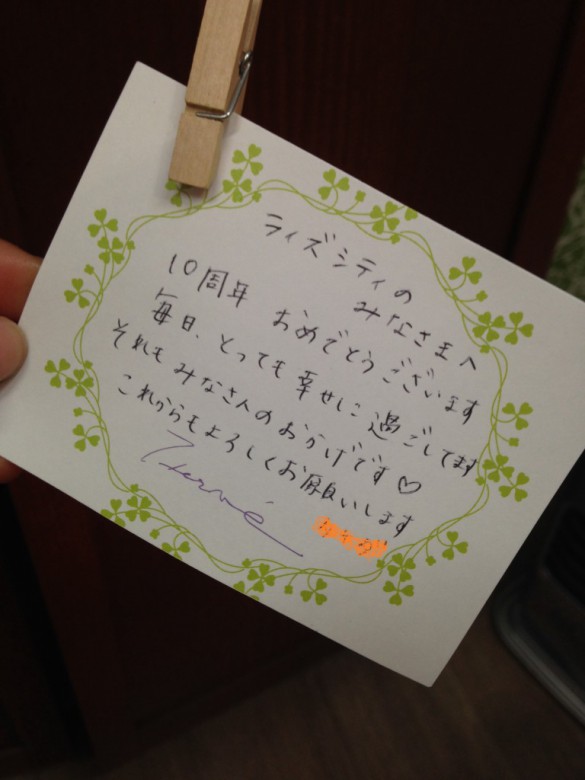 ライズシティの
みなさまへ
10周年 おめでとうございます
毎日、とっても幸せに過ごしてます
それもみなさんのおかげです♡
これからもよろしくお願いします
Hervé